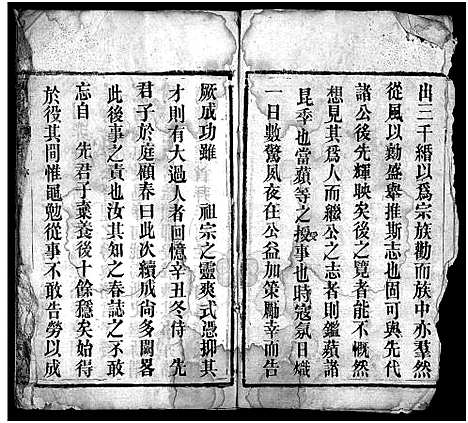 出二千緡以爲宗族勸而族中亦羣然
從風以勷盛舉推斯志也固可與先代
諸公後先輝映矣後之覽者能不慨然
想見其爲人而繼公之志者則鑑蘋諸
昆季也當蘋等之授事也時寇氛日熾
一日數驚夙夜在公益加策勵幸而告
厥成功雖 祖宗之靈爽式憑抑其
才則有大過人者回憶辛丑冬侍 先
君子於庭顧春曰此次續成尚多闕畧
此後事之責也汝其知之春誌之不敢
忘自 先君子棄養後十餘穩矣始得
於役其間惟黽勉從事不敢告勞以成